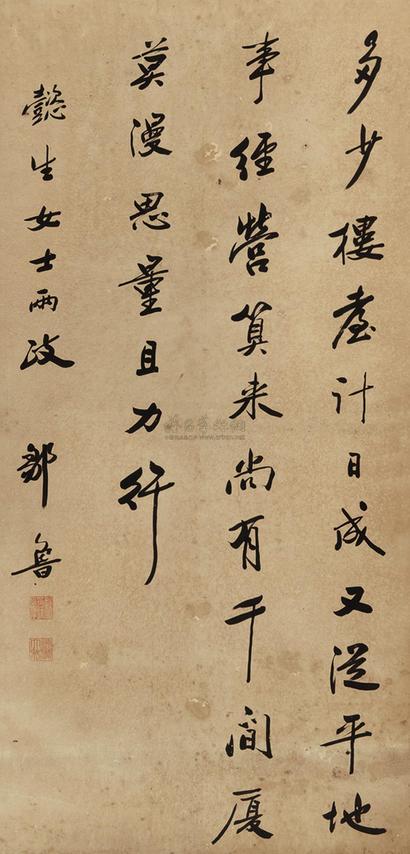 多少樓臺計日成又從平地
事經營算來尚有千間厦
莫漫思量且力行
懿生女士兩政
鄒魯